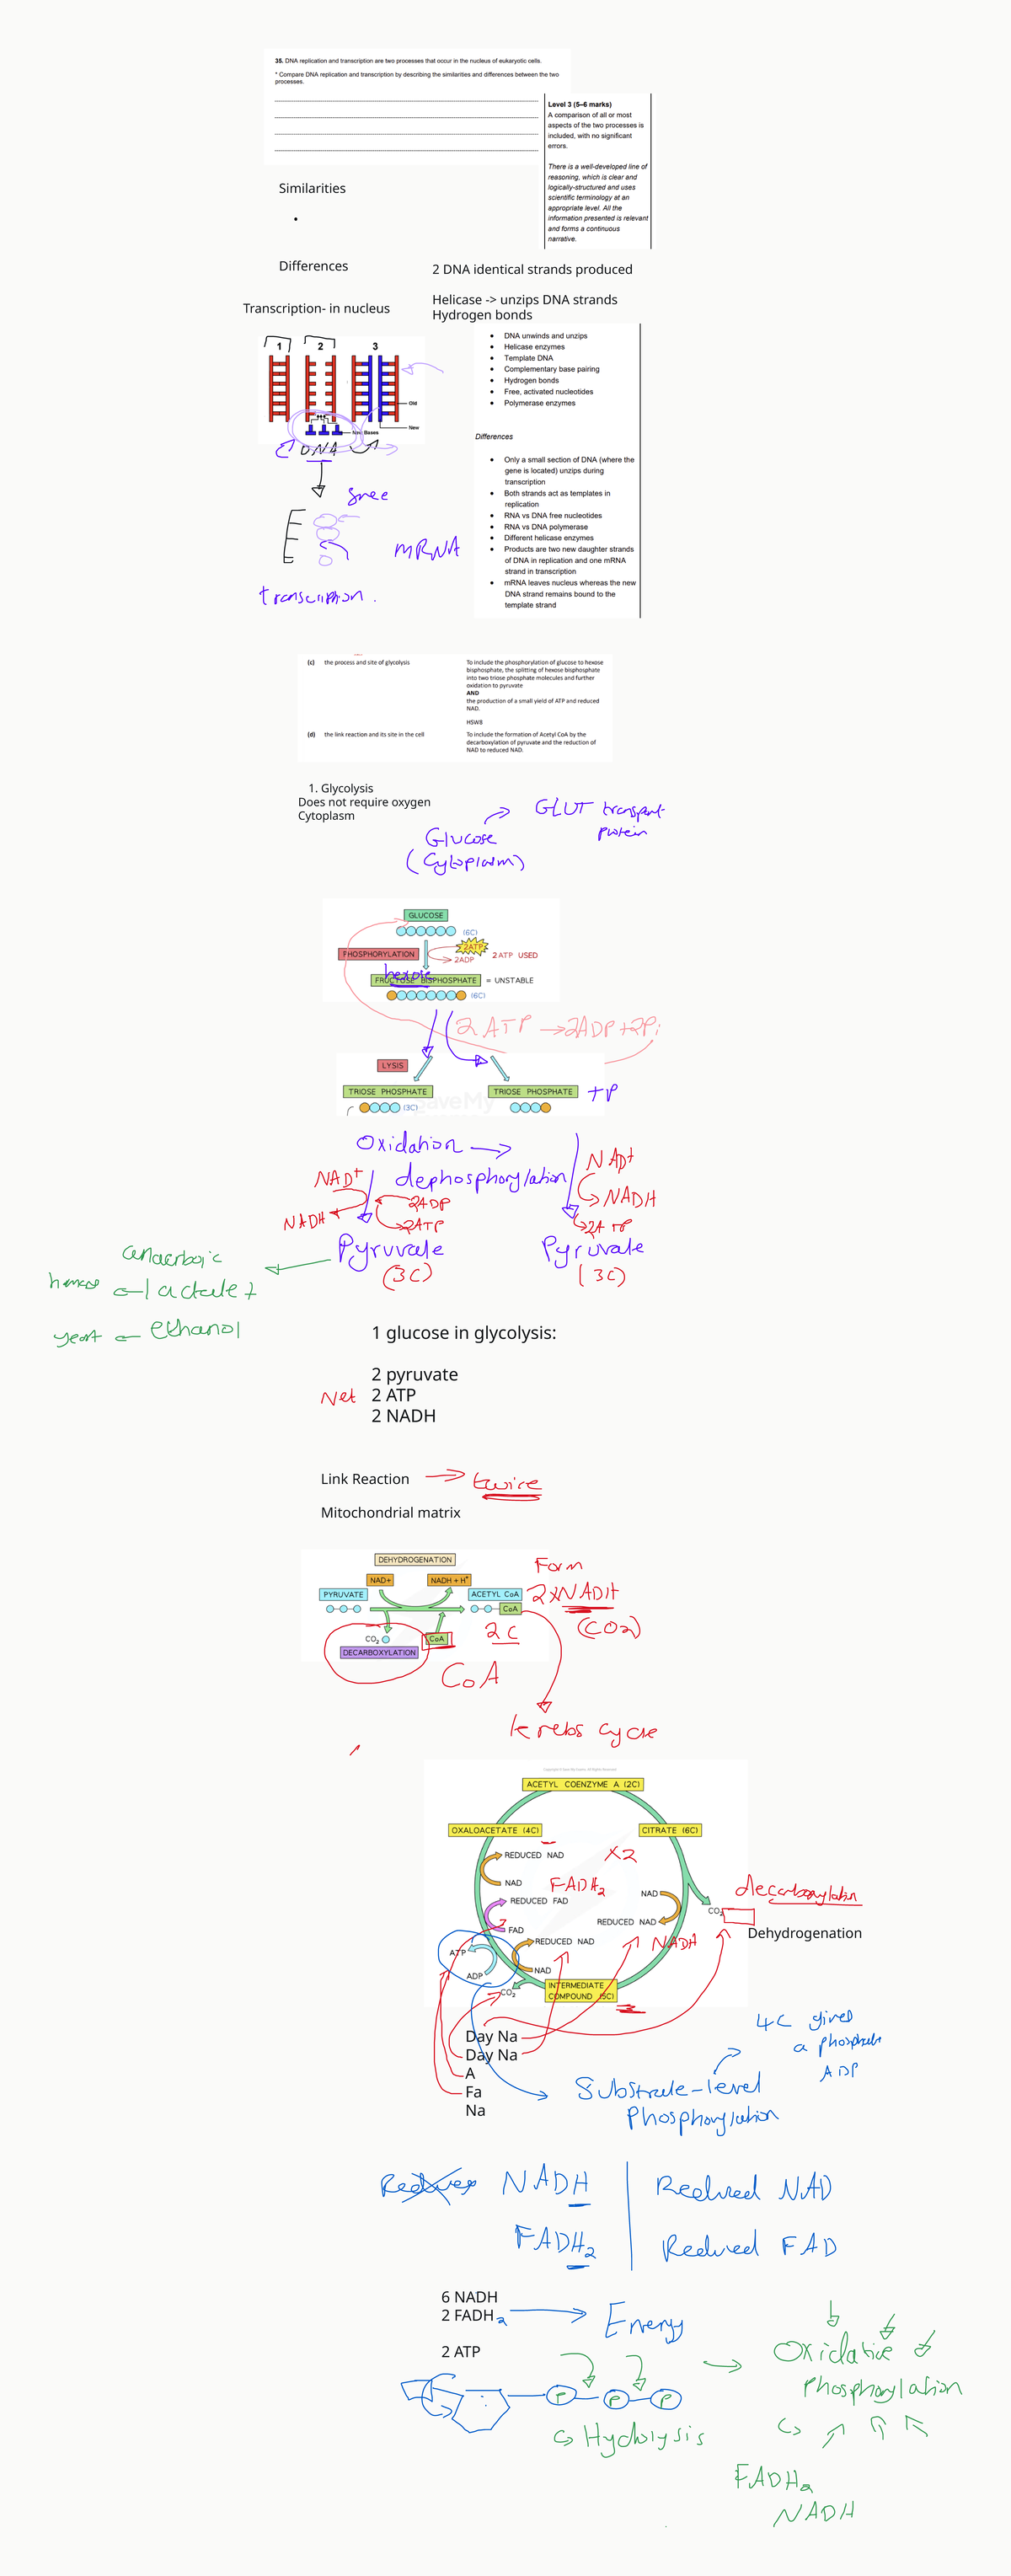 35. DNA replication and transcription are two processes that occur in the nucleus of eukaryotic cells.
* Compare DNA replication and transcription by describing the similarities and differences between the two
processes.
Level 3 (5–6 marks)
A comparison of all or most
aspects of the two processes is
included, with no significant
errors.
There is a well-developed line of
reasoning, which is clear and
logically-structured and uses
scientific terminology at an
appropriate level. All the
information presented is relevant
and forms a continuous
narrative.
Similarities
•
Differences
2 DNA identical strands produced
Helicase -> unzips DNA strands
Hydrogen bonds
Transcription- in nucleus
1 2 3
Old
New
New Bases
DNA
free
mRNA
transcription.
• DNA unwinds and unzips
• Helicase enzymes
• Template DNA
• Complementary base pairing
• Hydrogen bonds
• Free, activated nucleotides
• Polymerase enzymes
Differences
• Only a small section of DNA (where the
gene is located) unzips during
transcription
• Both strands act as templates in
replication
• RNA vs DNA free nucleotides
• RNA vs DNA polymerase
• Different helicase enzymes
• Products are two new daughter strands
of DNA in replication and one mRNA
strand in transcription
• mRNA leaves nucleus whereas the new
DNA strand remains bound to the
template strand
(c) the process and site of glycolysis
To include the phosphorylation of glucose to hexose
bisphosphate, the splitting of hexose bisphosphate
into two triose phosphate molecules and further
oxidation to pyruvate
AND
the production of a small yield of ATP and reduced
NAD.
HSW8
(d) the link reaction and its site in the cell
To include the formation of Acetyl CoA by the
decarboxylation of pyruvate and the reduction of
NAD to reduced NAD.
1. Glycolysis
Does not require oxygen
Cytoplasm
GLUT transport
protein
Glucose
(Cytoplasm)
GLUCOSE
(6C)
PHOSPHORYLATION
2ATP
2ADP
2 ATP USED
hexose
FRUCTOSE BISPHOSPHATE = UNSTABLE
(6C)
2 ATP → 2ADP+2Pi
LYSIS
TRIOSE PHOSPHATE
TRIOSE PHOSPHATE
TP
(3C)
Oxidation
dephosphorylation
NAD+
NADH
2ADP
2ATP
NAD+
NADH
2ATP
Pyruvate
(3C)
Pyruvate
(3C)
anaerobic
lactate
yeast ← ethanol
1 glucose in glycolysis:
2 pyruvate
Net 2 ATP
2 NADH
Link Reaction → twice
Mitochondrial matrix
DEHYDROGENATION
NAD+
NADH + H+
PYRUVATE
ACETYL CoA
CoA
CO2
CoA
DECARBOXYLATION
Form
2xNADH
(CO2)
2C
CoA
krebs cycle
ACETYL COENZYME A (2C)
OXALOACETATE (4C)
CITRATE (6C)
REDUCED NAD
x2
NAD
FADH2
REDUCED FAD
NAD
FAD
REDUCED NAD
CO2
decarboxylation
Dehydrogenation
REDUCED NAD
NADH
ATP
ADP
NAD
CO2
INTERMEDIATE
COMPOUND (5C)
Day Na
Day Na
A
Fa
Na
4C gives
a phosphate
ADP
Substrate-level
Phosphorylation
NADH
Reduced NAD
FADH2
Reduced FAD
6 NADH
2 FADH2
Energy
2 ATP
Oxidative
Phosphorylation
P P P
Hydrolysis
FADH2
NADH